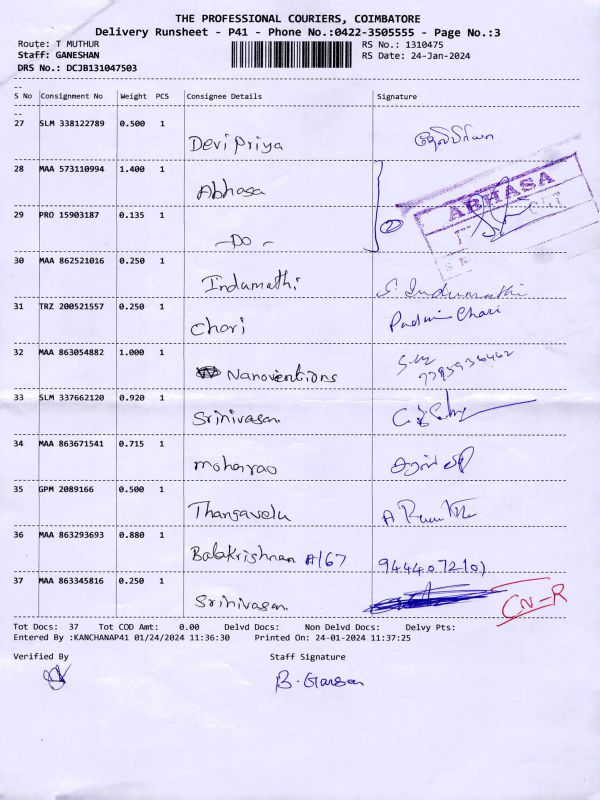 THE PROFESSIONAL COURIERS, COIMBATORE
Delivery Runsheet - P41 - Phone No.:0422-3505555 - Page No.:3
Route: T MUTHUR RS No.: 1310475
Staff: GANESHAN RS Date: 24-Jan-2024
DRS No.: DCJB131047503
S No Consignment No Weight PCS Consignee Details Signature
27 SLM 338122789 0.500 1 Devi Priya
28 MAA 573110994 1.400 1 Abhasa
ABHASA
29 PRO 15903187 0.135 1 -Do- 2
30 MAA 862521016 0.250 1 Indumathi S. Indumathi
31 TRZ 200521557 0.250 1 Chari Padmi Chari
32 MAA 863054882 1.000 1 Nanoventions
33 SLM 337662120 0.920 1 Srinivasan
34 MAA 863671541 0.715 1 moharao
35 GPM 2089166 0.500 1 Thangavelu
36 MAA 863293693 0.880 1 Balakrishnan A/67 9444072101
37 MAA 863345816 0.250 1 Srinivasan CN-R
Tot Docs: 37 Tot COD Amt: 0.00 Delvd Docs: Non Delvd Docs: Delvy Pts:
Entered By :KANCHANAP41 01/24/2024 11:36:30 Printed On: 24-01-2024 11:37:25
Verified By Staff Signature